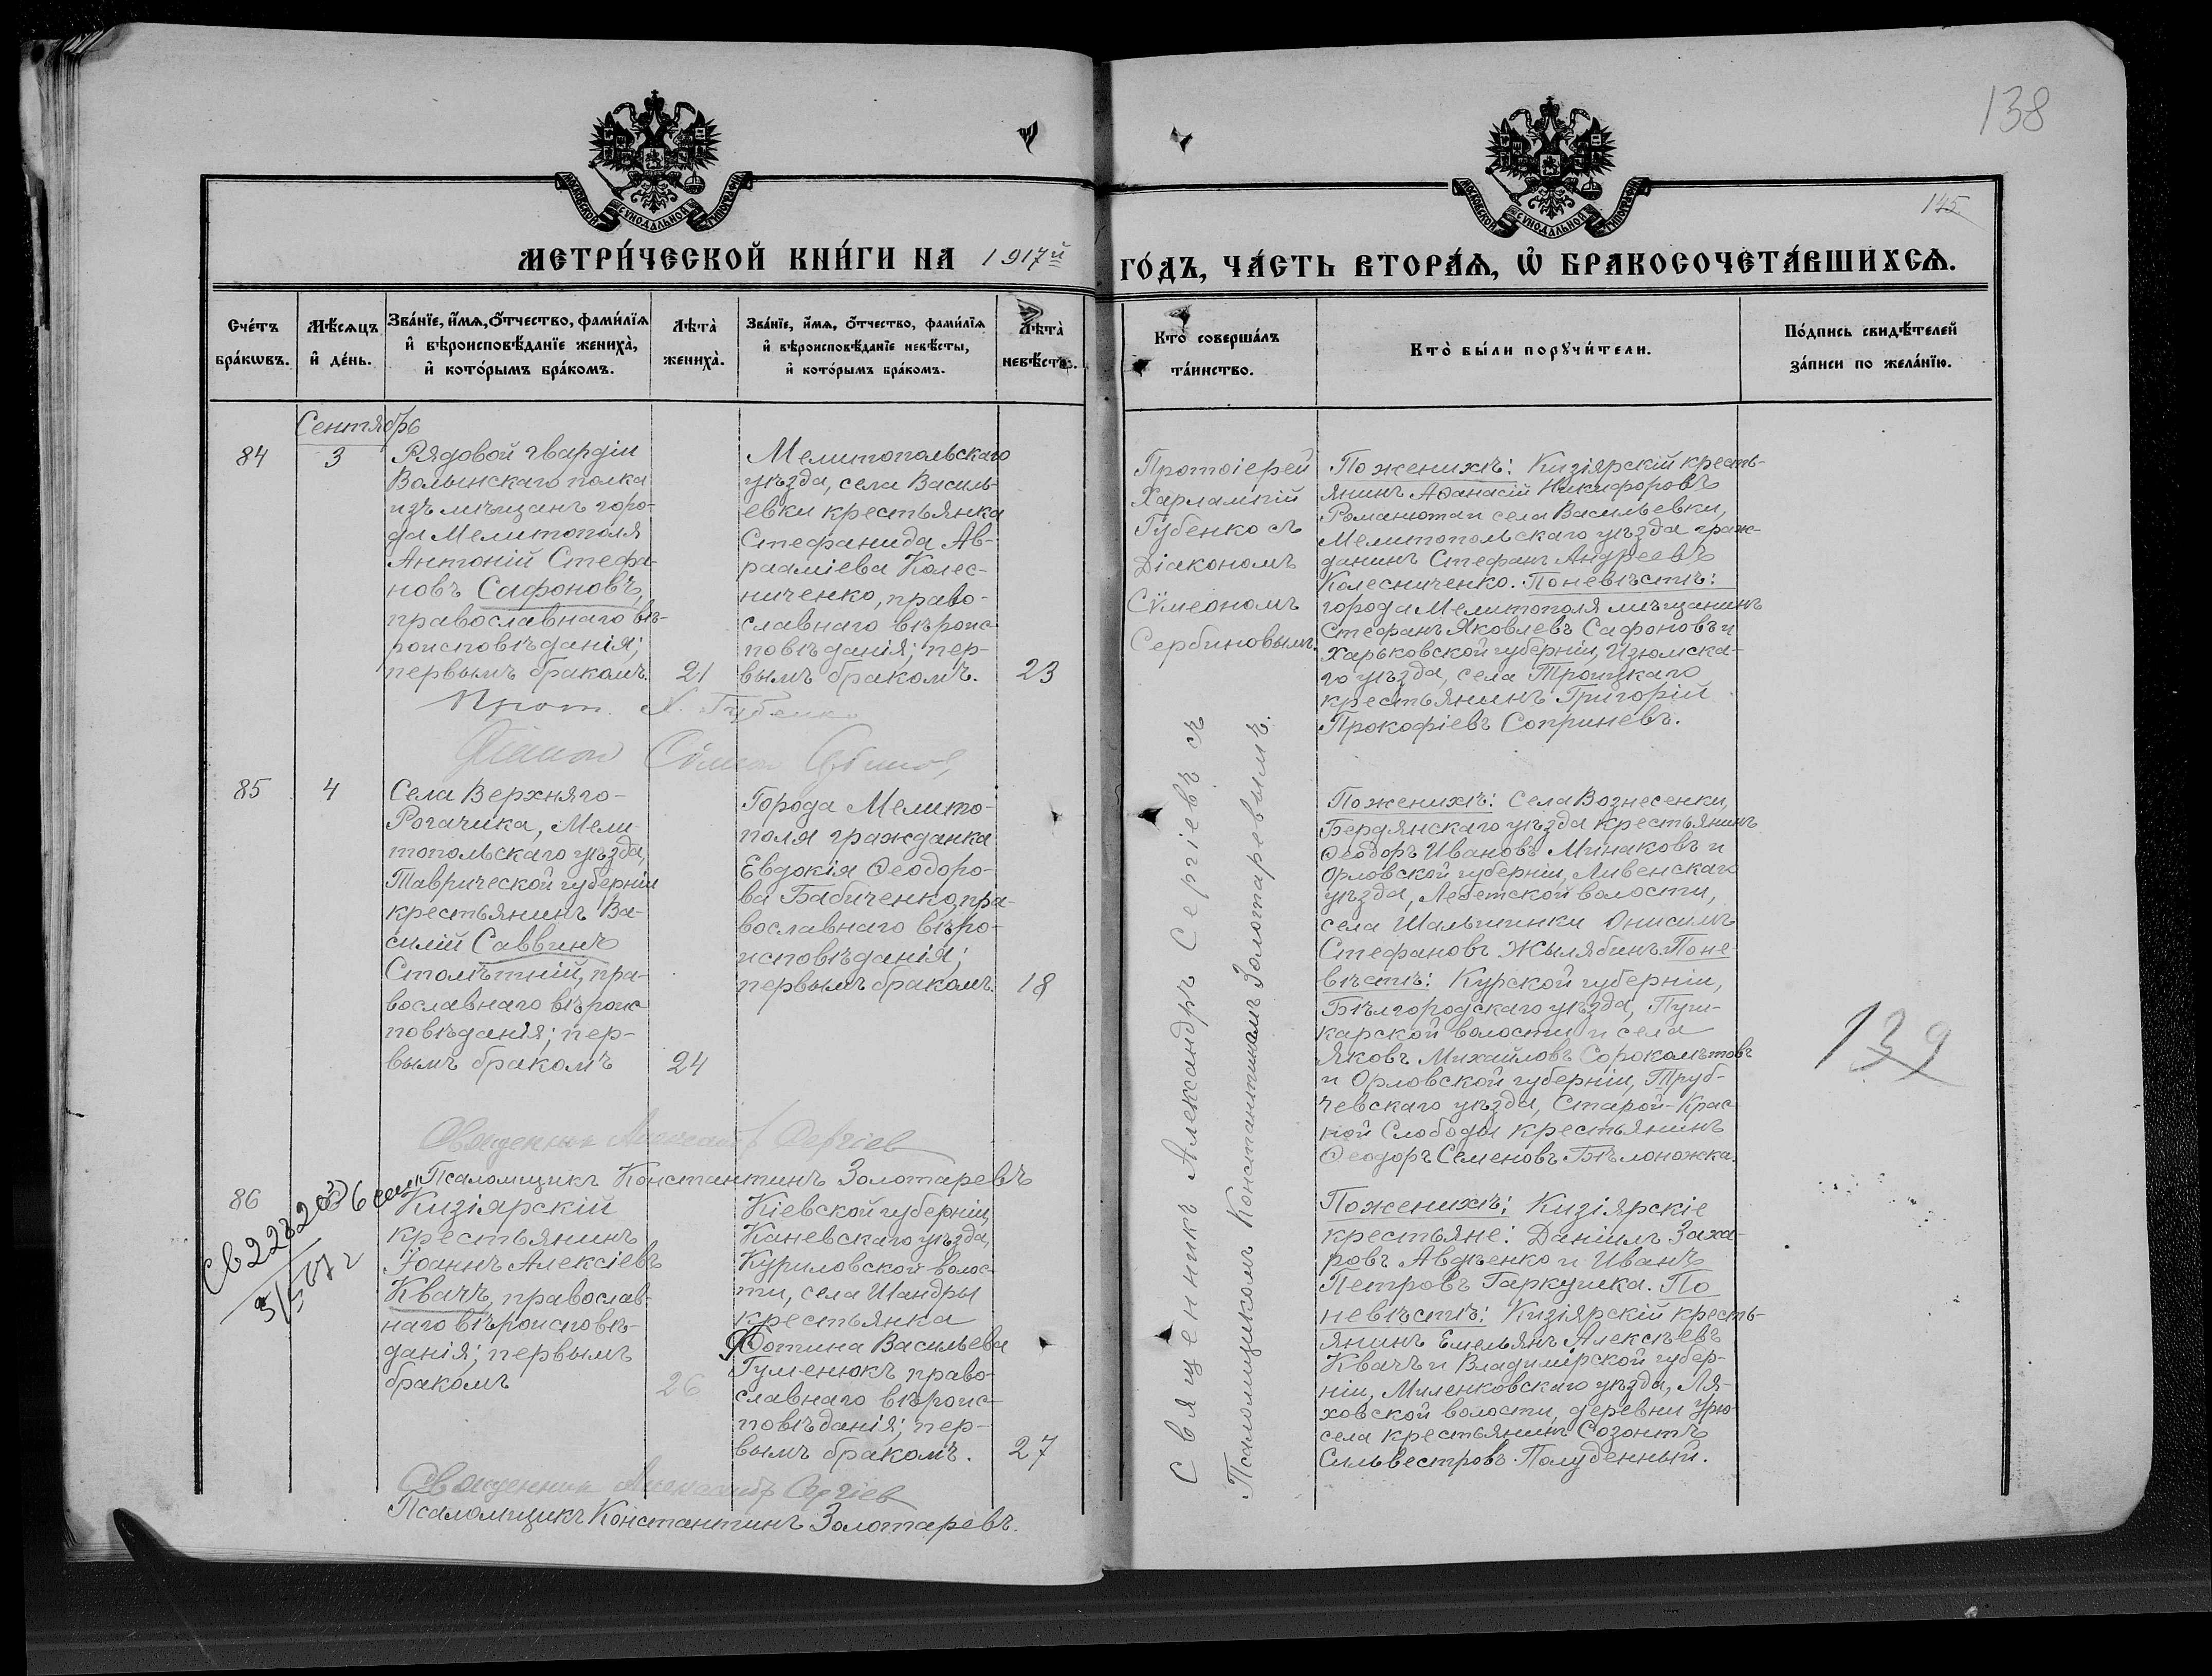 138
145
МОСКОВСКОЙ СѴНОДАЛЬНОЙ ТИПОГРАФІИ
МОСКОВСКОЙ СѴНОДАЛЬНОЙ ТИПОГРАФІИ
МЕТРИ́ЧЕСКОЙ КНИ́ГИ НА 1917й ГО́ДЪ, ЧА́СТЬ ВТОРА́Ѧ, Ѽ БРАКОСОЧЕТА́ВШИХСѦ.
Сче́тъ
бра́кѡвъ.
Мѣ́сѧцъ
и҆ де́нь.
Зва́нїе, и҆́мѧ, ѻ҆́тчество, фами́лїѧ
и҆ вѣроисповѣ́данїе жениха̀,
и҆ кото́рымъ бра́комъ.
Лѣта̀
жениха̀.
Зва́нїе, и҆́мѧ, ѻ҆́тчество, фами́лїѧ
и҆ вѣроисповѣ́данїе невѣ́сты,
и҆ кото́рымъ бра́комъ.
Лѣта̀
невѣ́сты.
Кто̀ соверша́лъ
та́инство.
Кто̀ бы́ли порꙋчи́тели.
По́дпись свидѣ́телей
за́писи по жела́нїю.
Сентябрь
84
3
Рядовой гвардіи
Волынскаго полка
изъ мѣщанъ горо-
да Мелитополя
Антоній Стефа-
новъ Сафоновъ,
православнаго вѣ-
роисповѣданія;
первымъ бракомъ.
21
Мелитопольскаго
уѣзда, села Василь-
евки крестьянка
Стефанида Ав-
рааміева Колес-
ниченко, право-
славнаго вѣроис-
повѣданія; пер-
вымъ бракомъ.
23
Протоіерей
Харлампій
Губенко съ
Діакономъ
Сѵмеономъ
Сербиновымъ
По женихѣ: Кизіярскій кресть-
янинъ Аѳанасій Никифоровъ
Романюта и села Васильевки,
Мелитопольскаго уѣзда граж-
данинъ Стефанъ Андреевъ
Колесниченко. По невѣстѣ:
города Мелитополя мѣщанинъ
Стефанъ Яковлевъ Сафоновъ и
Харьковской губерніи, Изюмска-
го уѣзда, села Троицкаго
крестьянинъ Григорій
Прокофіевъ Соприневъ.
Прот. Х. Губенко
85
4
Села Верхняго-
Рогачика, Мели-
топольскаго уѣзда,
Таврической губерніи
крестьянинъ Ва-
силій Саввинъ
Столѣтній, пра-
вославнаго вѣроис-
повѣданія; пер-
вымъ бракомъ
24
Города Мелито-
поля гражданка
Евдокія Ѳеодоро-
ва Бабиченко, пра-
вославнаго вѣро-
исповѣданія;
первымъ бракомъ.
18
Священникъ Александръ Сергіевъ съ
Псаломщикомъ Константиномъ Золотаревымъ.
По женихѣ: Села Вознесенки,
Бердянскаго уѣзда крестьянинъ
Ѳеодоръ Ивановъ Минаковъ и
Орловской губерніи, Ливенскаго
уѣзда, волости,
села Онисимъ
Стефановъ Жылябинъ. По не-
вѣстѣ: Курской губерніи,
Бѣлгородскаго уѣзда, Пуш-
карской волости и села
Яковъ Михайловъ Сороколѣтовъ
и Орловской губерніи, Труб-
чевскаго уѣзда, Старой-Крас-
ной Слободы крестьянинъ
Ѳеодоръ Семеновъ Бѣлоножка.
139
Священникъ Александръ Сергіевъ
Псаломщикъ Константинъ Золотаревъ
86
Кизіярскій
крестьянинъ
Іоаннъ Алексіевъ
Квачъ, православ-
наго вѣроисповѣ-
данія; первымъ
бракомъ
26
Кіевской губерніи,
Каневскаго уѣзда,
Куриловской волос-
ти, села Шандры
крестьянка
Фотина Васильева
Гуменюкъ, право-
славнаго вѣроис-
повѣданія; пер-
вымъ бракомъ.
27
По женихѣ: Кизіярскіе
крестьяне: Даніилъ Заха-
ровъ Авдѣенко и Иванъ
Петровъ Гаркушка. По
невѣстѣ: Кизіярскій кресть-
янинъ Емельянъ Алексѣевъ
Квачъ и Владимірской губер-
ніи, Миленковскаго уѣзда, Ля-
ховской волости, деревни Урю-
села крестьянинъ Созонтъ
Сильвестровъ Полуденный.
Священникъ Александръ Сергіевъ
Псаломщикъ Константинъ Золотаревъ.